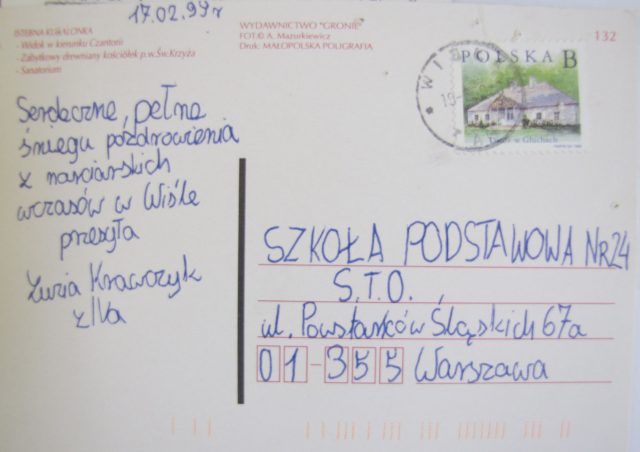 17.02.99r
ISTEBNA KUBALONKA
- Widok w kierunku Czantorii
- Zabytkowy drewniany kościółek p.w. Św. Krzyża
- Sanatorium
WYDAWNICTWO "GRONIE"
FOT © A. Mazurkiewicz
Druk: MAŁOPOLSKA POLIGRAFIA
132
POLSKA B
Dwór w Głuchach
WIS
19
Serdeczne, pełne
śniegu pozdrowienia
z narciarskich
wczasów w Wiśle
przesyła
Zuzia Krawczyk
z IVa
SZKOŁA PODSTAWOWA NR 24
S.T.O.,
ul. Powstańców Śląskich 67a
01-355 Warszawa